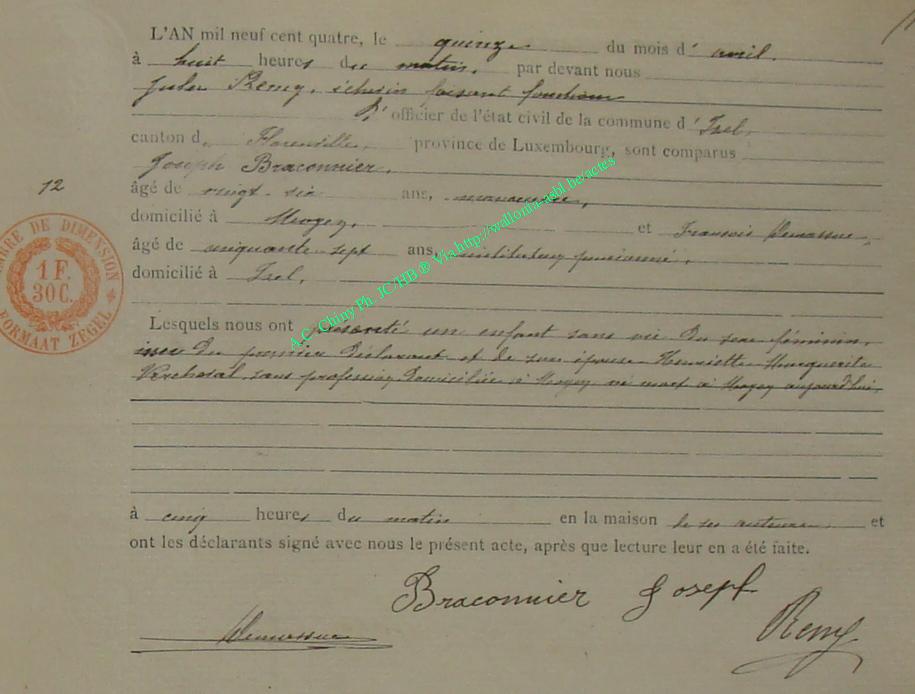 L'AN mil neuf cent quatre, le quinze du mois d' avril,
à huit heures du matin, par devant nous
Jules Remy, échevin faisant fonctions
d' officier de l'état civil de la commune d' Izel,
canton d. Florenville, province de Luxembourg, sont comparus
Joseph Braconnier,
12
âgé de vingt-six ans, manoeuvre,
domicilié à Moyen, et François
âgé de cinquante-sept ans, instituteur pensionné,
domicilié à Izel,
TIMBRE DE DIMENSION
1 F.
30 C.
FORMAAT ZEGEL
A.C. Chiny Ph. JC/HB ® Via http://wallonia-asbl.be/actes
Lesquels nous ont présenté un enfant sans vie du sexe féminin,
issu du premier déclarant et de son épouse Henriette Marguerite
sans profession, domiciliée à Moyen, né mort à Moyen aujourd'hui,
à cinq heures du matin en la maison de ses auteurs, et
ont les déclarants signé avec nous le présent acte, après que lecture leur en a été faite.
Braconnier Joseph
Remy